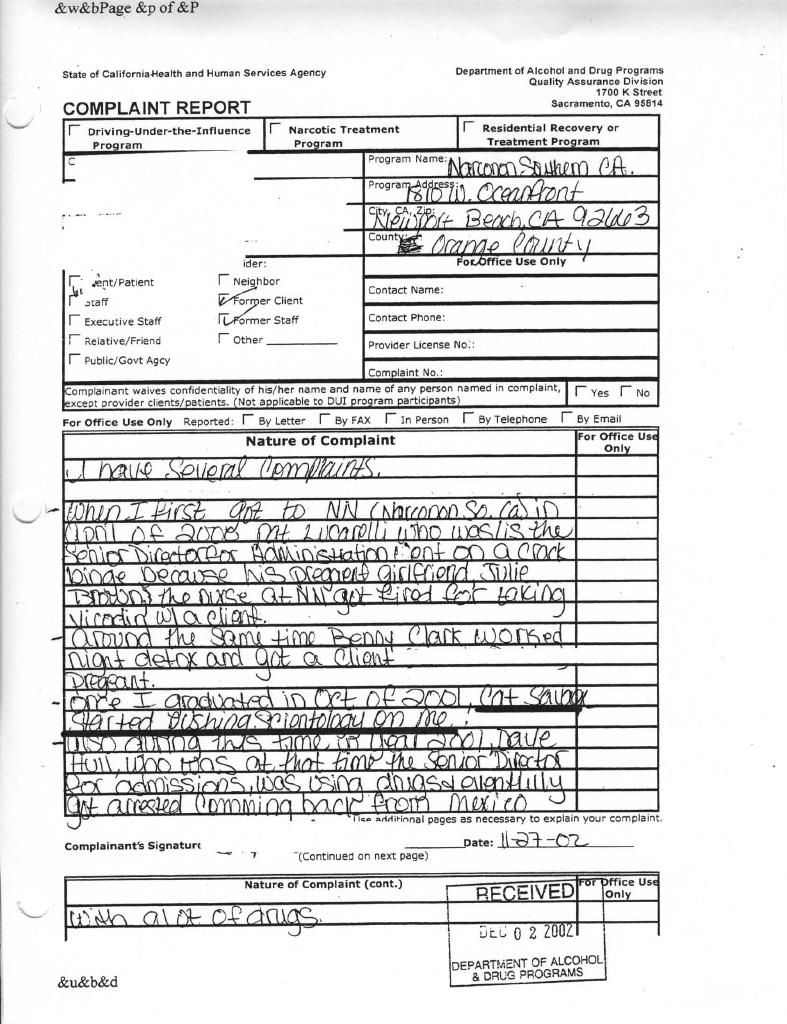 &w&bPage &p of &P
State of California-Health and Human Services Agency
Department of Alcohol and Drug Programs
Quality Assurance Division
1700 K Street
Sacramento, CA 95814
COMPLAINT REPORT
Driving-Under-the-Influence Program
Narcotic Treatment Program
Residential Recovery or Treatment Program
C
Program Name: Narconon Southern CA.
Program Address: 1810 W. Oceanfront
City, CA, Zip: Newport Beach, CA 92663
County: Orange County
ider:
For Office Use Only
ent/Patient
Neighbor
Contact Name:
staff
Former Client
Executive Staff
Former Staff
Contact Phone:
Relative/Friend
Other
Provider License No.:
Public/Govt Agcy
Complaint No.:
Complainant waives confidentiality of his/her name and name of any person named in complaint,
except provider clients/patients. (Not applicable to DUI program participants)
Yes No
For Office Use Only Reported: By Letter By FAX In Person By Telephone By Email
Nature of Complaint
For Office Use Only
I have several complaints.
When I first got to NN (Narconon So. Ca) in
April of 200 Lucarelli who was/is the
Senior Director for Administration went on a crack
binge because his pregnent girlfriend, Julie
Brown, the nurse at NN got fired for taking
vicodin w/ a client.
Around the same time Benny Clark worked
night detox and got a client
pregeant.
Once I graduated in Oct of 2001, Cat
started pushing Scientology on me.
Also during this time, in 2001, Dave
Hull, who was at that time the Senior Director
for admissions, was using drugs & eventually
got arrested comming back from Mexico
Use additional pages as necessary to explain your complaint.
Complainant's Signature
Date: 11-27-02
(Continued on next page)
Nature of Complaint (cont.)
For Office Use Only
with alot of drugs.
RECEIVED
DEC 02 2002
DEPARTMENT OF ALCOHOL
& DRUG PROGRAMS
&u&b&d